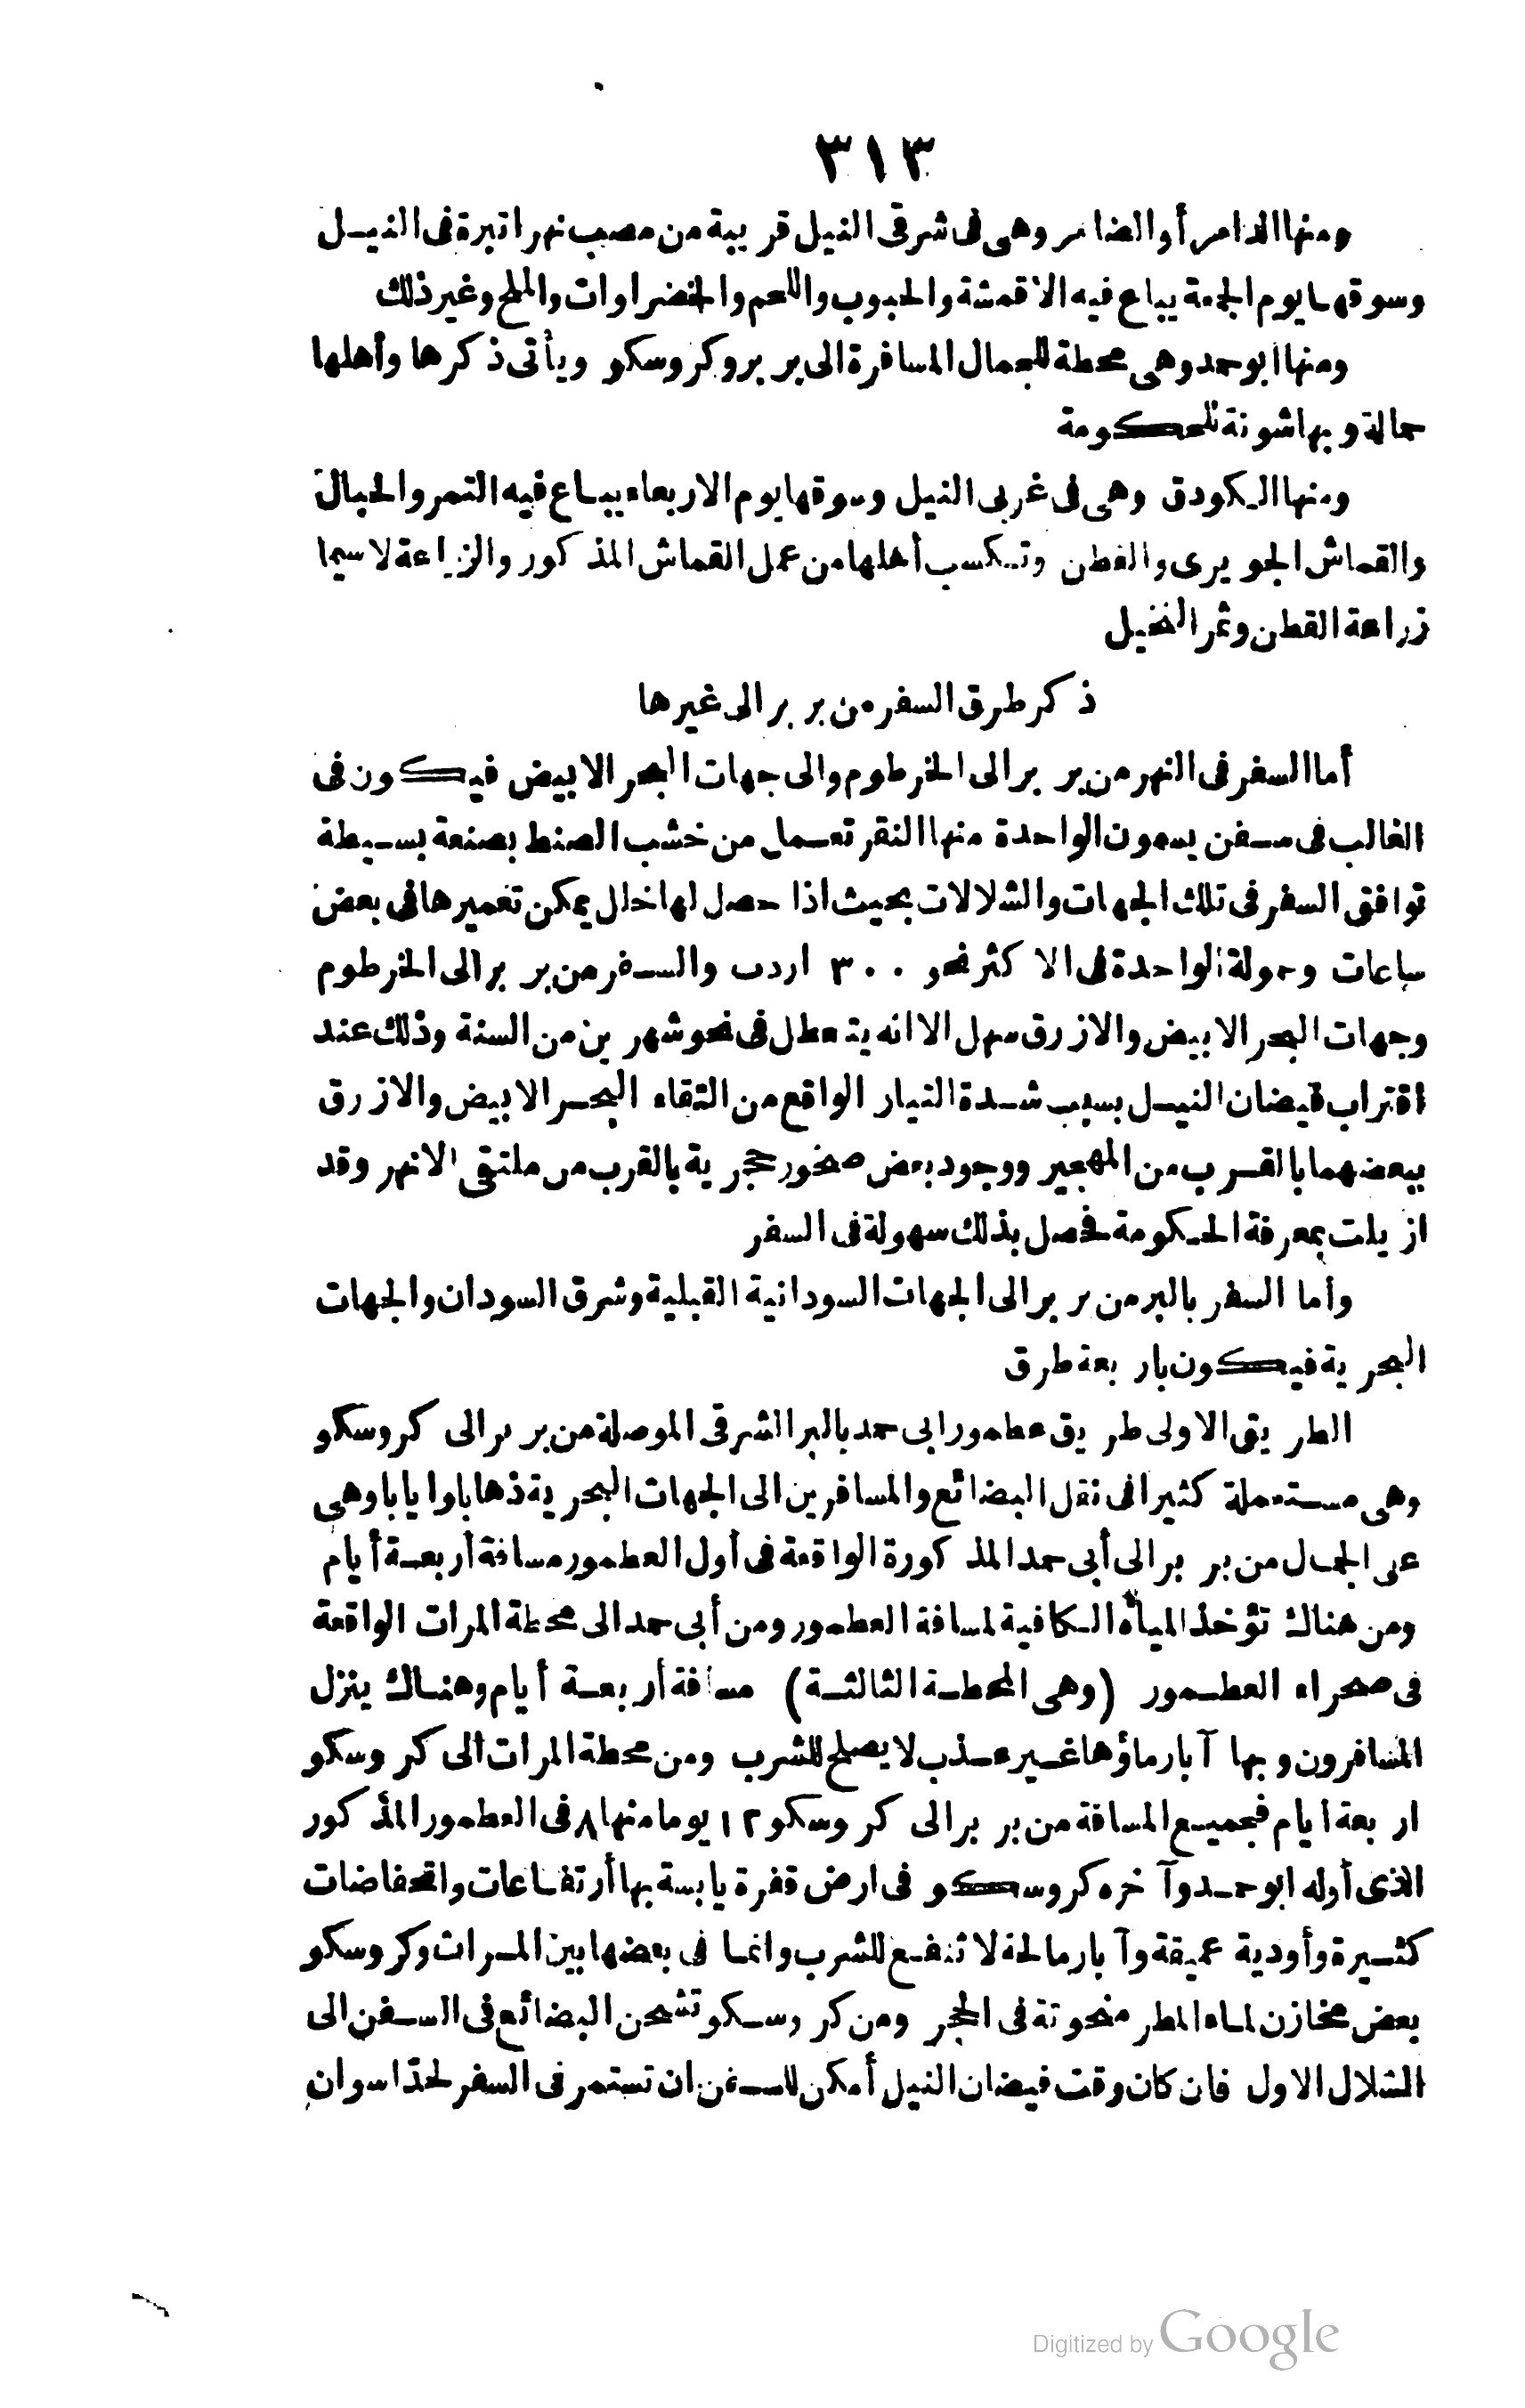 ٣١٣
ومنها الدامر أو الضامر وهى فى شرقى النيل قريبة من مصب نهر اتبرة فى النيل
وسوقها يوم الجمعة يباع فيه الاقمشة والحبوب واللحم والخضراوات والملح وغير ذلك
ومنها ابو حمد وهى محطة للجمال المسافرة الى بربر وكروسكو ويأتى ذكرها وأهلها
حمالة وبها شونة للحكومة
ومنها الكودق وهى فى غربى النيل وسوقها يوم الاربعاء يباع فيه التمر والحبال
والقماش الجويرى والقطن وتكسب أهلها من عمل القماش المذكور والزراعة لا سيما
زراعة القطن وثمر النخيل
ذكر طرق السفر من بربر الى غيرها
أما السفر فى النهر من بربر الى الخرطوم والى جهات البحر الابيض فيكون فى
الغالب فى سفن يسمون الواحدة منها النقر تعمل من خشب الصنط بصنعة بسيطة
توافق السفر فى تلك الجهات والشلالات بحيث اذا حصل لها خلل يمكن تعميرها فى بعض
ساعات وحمولة الواحدة فى الاكثر نحو ٣٠٠ اردب والسفر من بربر الى الخرطوم
وجهات البحر الابيض والازرق سهل الا انه يتعطل فى نحو شهرين من السنة وذلك عند
اقتراب فيضان النيل بسبب شدة التيار الواقع من التقاء البحر الابيض والازرق
ببعضهما بالقرب من المهجير ووجود بعض صخور حجرية بالقرب من ملتقى الانهر وقد
ازيلت بمعرفة الحكومة فحصل بذلك سهولة فى السفر
وأما السفر بالبر من بربر الى الجهات السودانية القبلية وشرق السودان والجهات
البحرية فيكون باربعة طرق
الطريق الاولى طريق عطمور ابى حمد بالبر الشرقى الموصلة من بربر الى كروسكو
وهى مستعملة كثيرا فى نقل البضائع والمسافرين الى الجهات البحرية ذهابا وايابا وهى
على الجمال من بربر الى أبى حمد المذكورة الواقعة فى أول العطمور مسافة أربعة أيام
ومن هناك تؤخذ المياه الكافية لمسافة العطمور ومن أبى حمد الى محطة المرات الواقعة
فى صحراء العطمور (وهى المحطة الثالثة) مسافة أربعة أيام وهناك ينزل
المسافرون وبها آبار ماؤها غير عذب لا يصلح للشرب ومن محطة المرات الى كروسكو
اربعة ايام فجميع المسافة من بربر الى كروسكو ١٢ يوما منها ٨ فى العطمور المذكور
الذى أوله ابو حمد وآخره كروسكو فى ارض قفرة يابسة بها أرتفاعات وانخفاضات
كثيرة وأودية عميقة وآبار مالحة لا تنفع للشرب وانما فى بعضها بين المرات وكروسكو
بعض مخازن لماء المطر منحوتة فى الحجر ومن كروسكو تشحن البضائع فى السفن الى
الشلال الاول فان كان وقت فيضان النيل أمكن للسفن ان تستمر فى السفر لحد اسوان
Digitized by Google